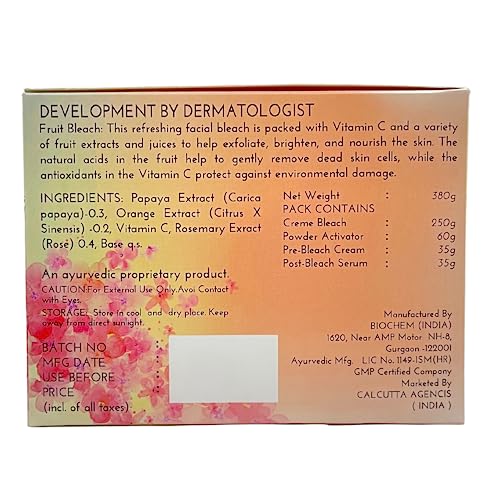 DEVELOPMENT BY DERMATOLOGIST
Fruit Bleach: This refreshing facial bleach is packed with Vitamin C and a variety
of fruit extracts and juices to help exfoliate, brighten, and nourish the skin. The
natural acids in the fruit help to gently remove dead skin cells, while the
antioxidants in the Vitamin C protect against environmental damage.
INGREDIENTS: Papaya Extract (Carica
papaya)-0.3, Orange Extract (Citrus X
Sinensis) -0.2, Vitamin C, Rosemary Extract
(Rose) 0.4, Base q.s.
An ayurvedic proprietary product.
CAUTION:For External Use Only.Avoi Contact
with Eyes.
STORAGE: Store in cool and dry place. Keep
away from direct sun light.
BATCH NO
MFG.DATE
USE BEFORE
PRICE
(incl. of all taxes)
Net Weight : 380g
PACK CONTAINS
Creme Bleach : 250g
Powder Activator : 60g
Pre-Bleach Cream : 35g
Post-Bleach Serum : 35g
Manufactured By
BIOCHEM (INDIA)
1620, Near AMP Motor NH-8,
Gurgaon -122001
Ayurvedic Mfg. LIC No. 1149-ISM(HR)
GMP Certified Company
Marketed By
CALCUTTA AGENCIS
( INDIA )